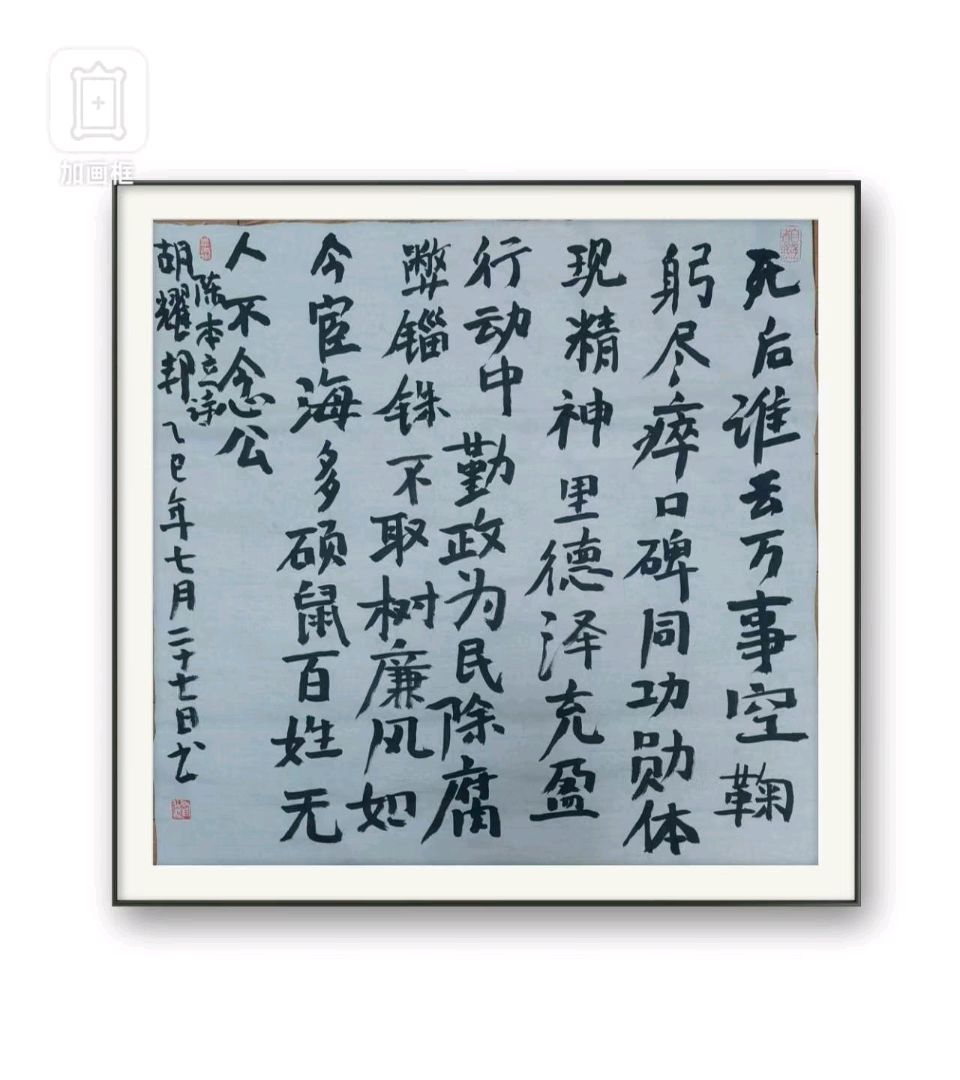 加画框
死后谁云万事空鞠
躬尽瘁口碑同功勋体
现精神里德泽充盈
行动中勤政为民除腐
弊锱铢不取树廉风如
今宦海多硕鼠百姓无
人不念公
陈本立诗
胡耀邦乙巳年七月二十七日书